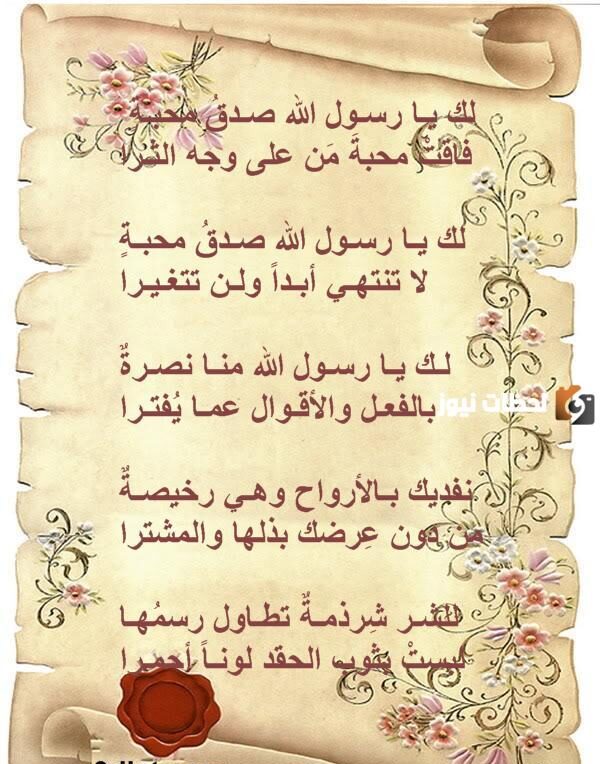 لك يـا رسـول الله صـدقُ محبـة
فاقتْ محبةَ مَن على وجه الثرا
لك يـا رسـول الله صـدقُ محبـةٍ
لا تنتهـي أبـداً ولـن تتغيـرا
لـك يـا رسـول الله منـا نصـرةٌ
بالفعـل والأقـوال عمـا يُفتـرا
لحظات نيوز
نفديك بـالأرواح وهـي رخيصـةٌ
من دون عِرضك بذلها والمشترا
للشـر شِرذمـةٌ تطـاول رسمُهـا
لبستْ بثوب الحقد لونـاً أحمـرا